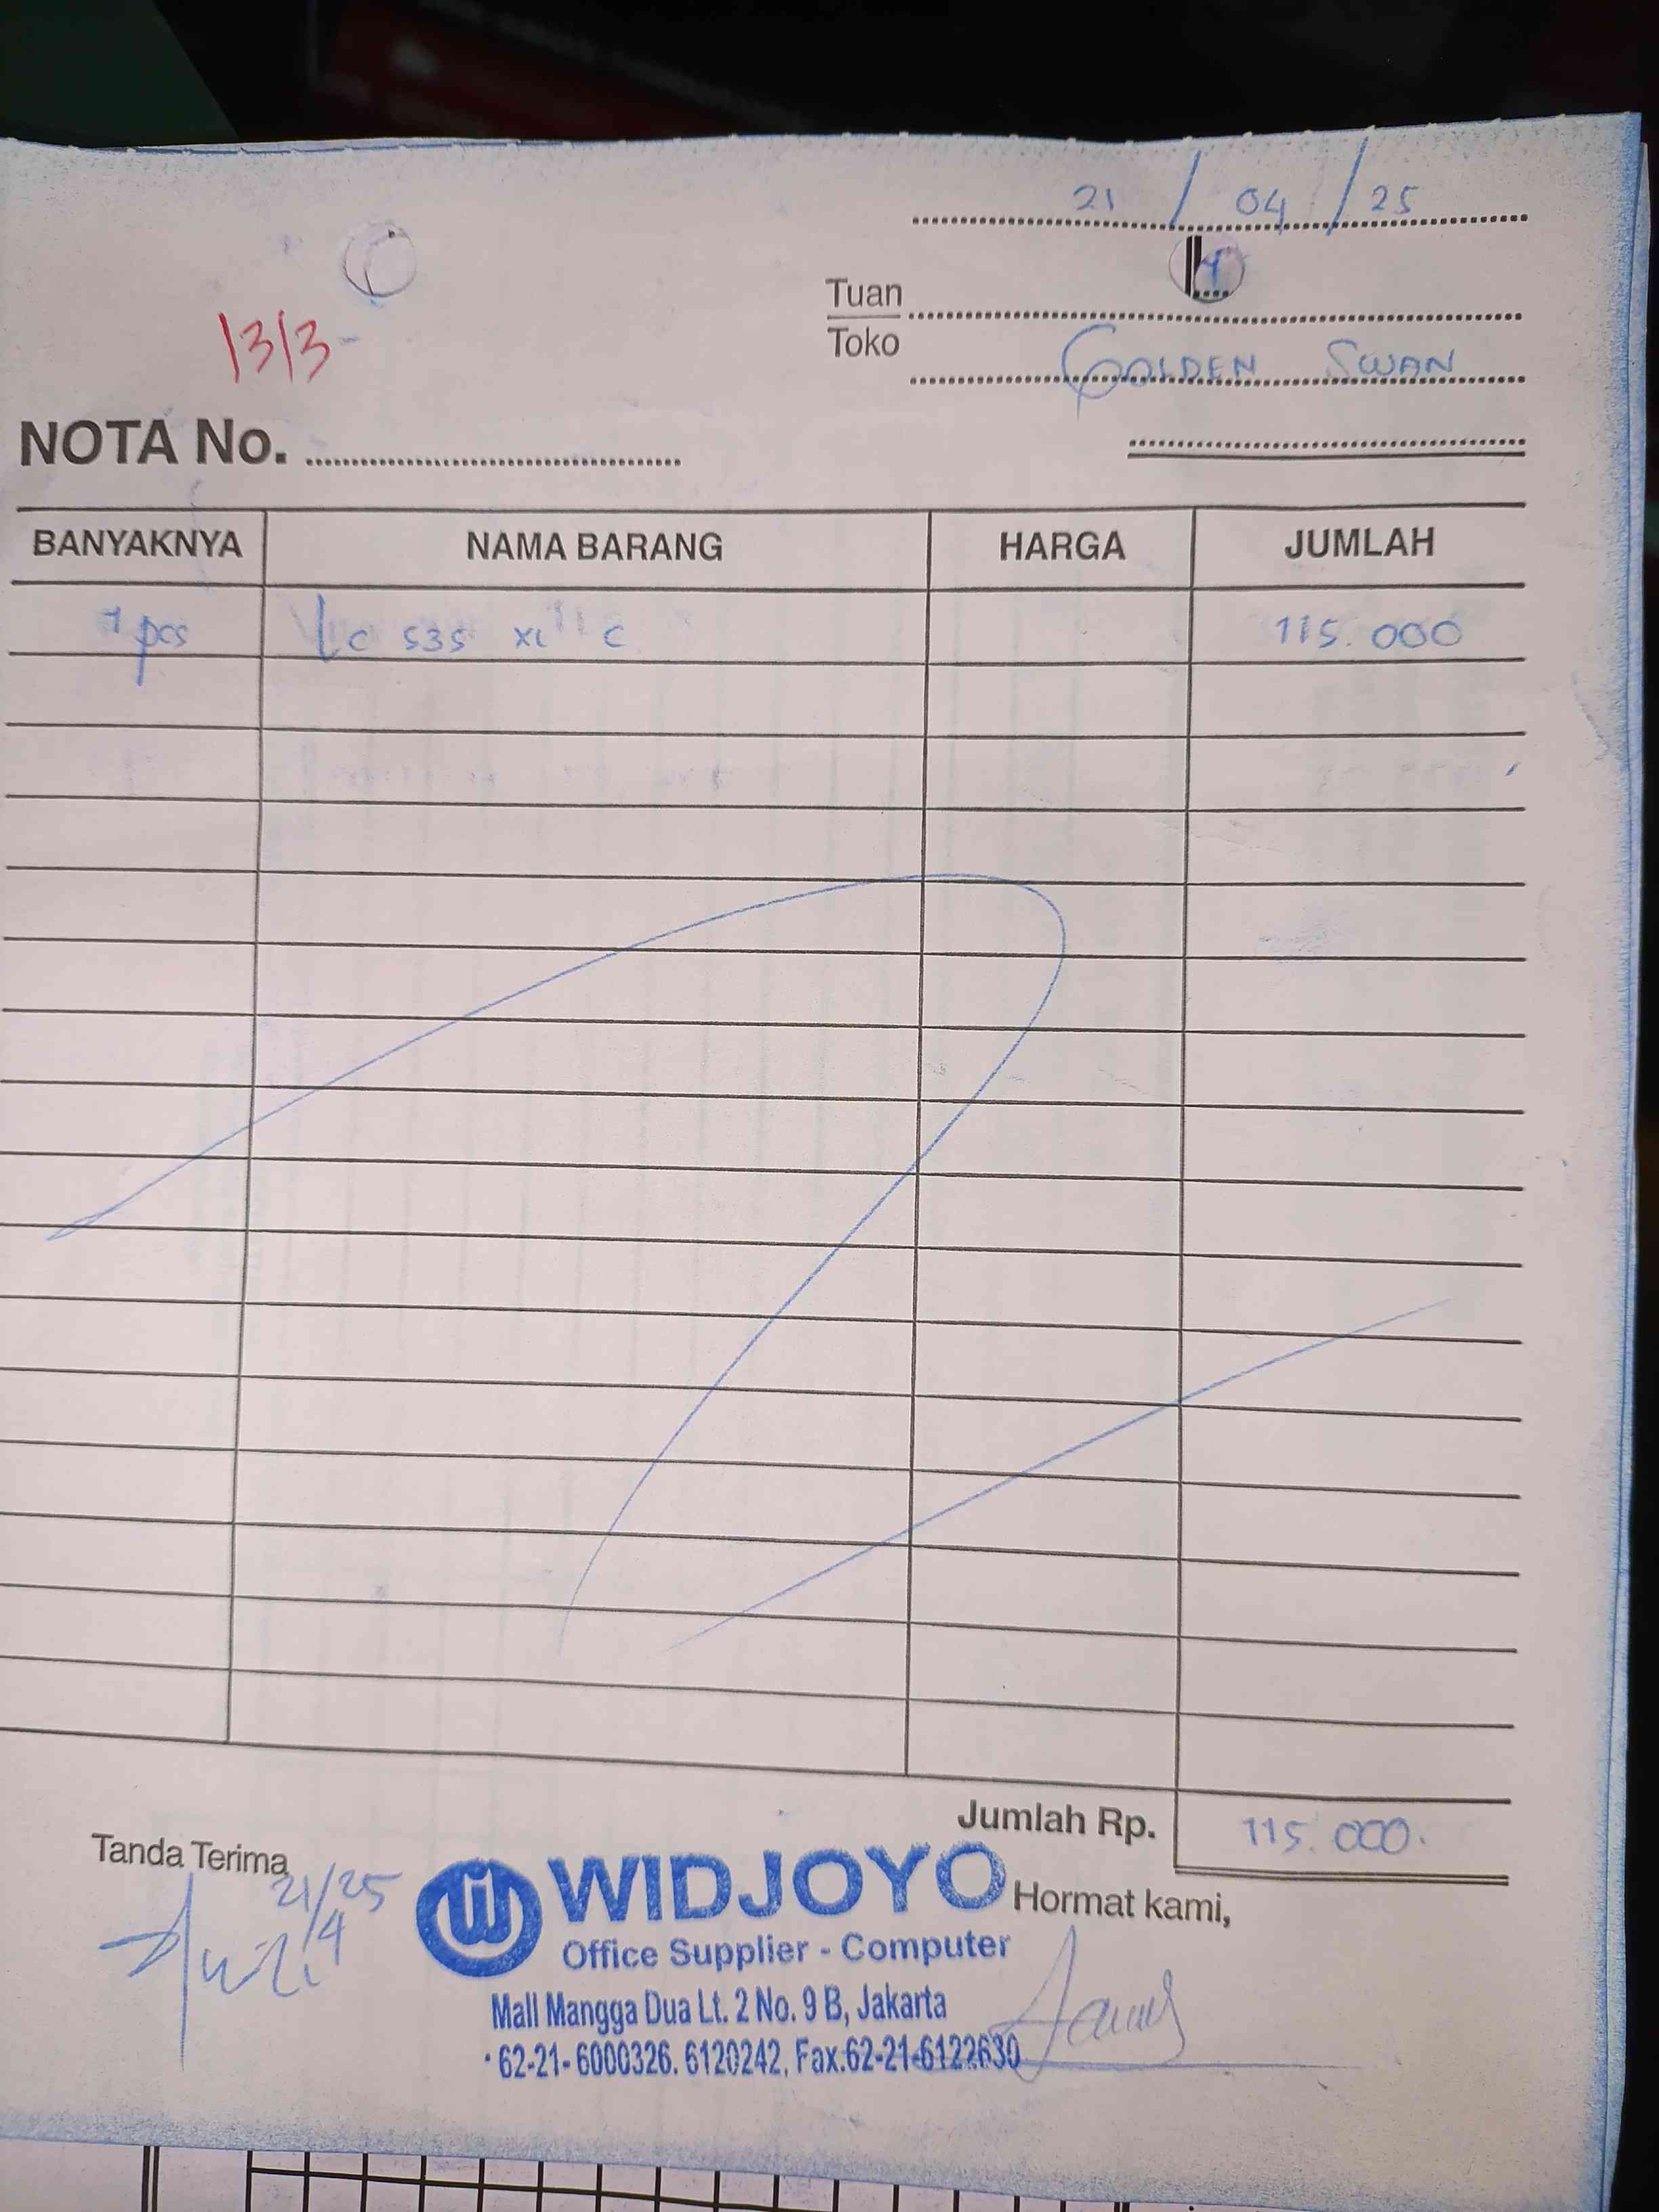 21 / 04 / 25
Tuan
Toko
GOLDEN SWAN
1313-
NOTA No.
BANYAKNYA NAMA BARANG HARGA JUMLAH
1 pcs Lc 535 XL C 115.000
Jumlah Rp. 115.000.
Tanda Terima
21/25
4
WIDJOYO
Hormat kami,
Office Supplier - Computer
Mall Mangga Dua Lt. 2 No. 9 B, Jakarta
62-21- 6000326. 6120242, Fax.62-21-6122630